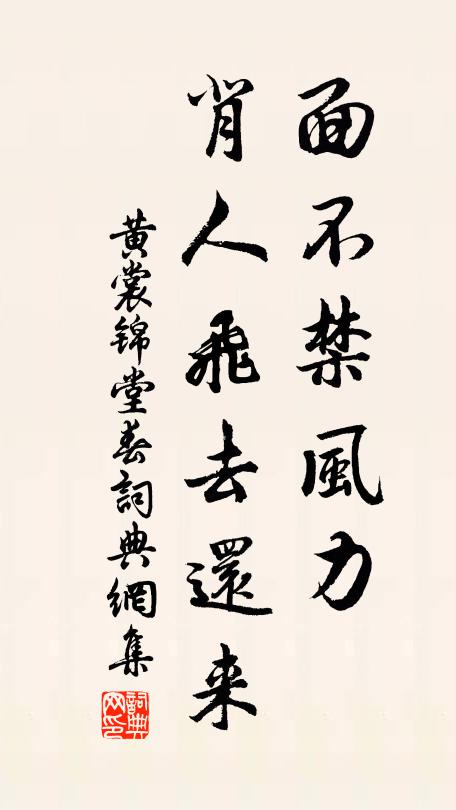 面不禁風力
背人飛去還来
黄裳锦堂春詞典網集
詞典网印